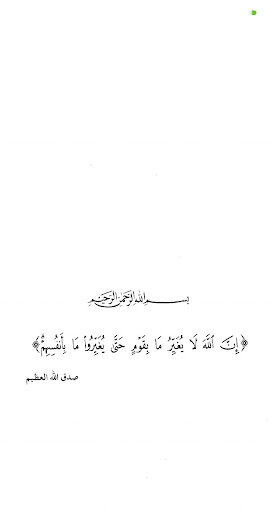 بسم الله الرحمن الرحيم
﴿إِنَّ اللَّهَ لَا يُغَيِّرُ مَا بِقَوْمٍ حَتَّىٰ يُغَيِّرُوا مَا بِأَنفُسِهِمْ﴾
صدق الله العظيم